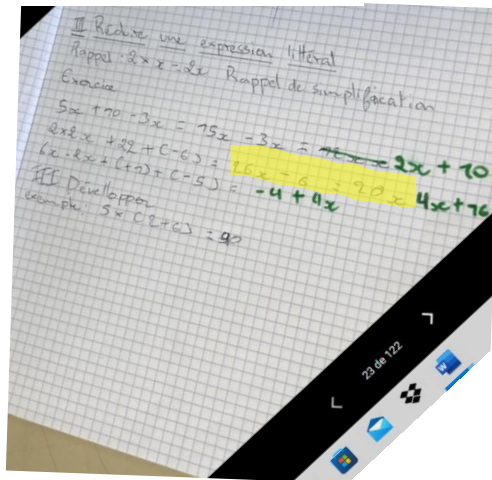 II Redire une expression littéral
Rappel : 2 x x = 2x Rappel de simplification
Exercice
5x + 10 - 3x = 15x - 3x = 2x + 10
2x2x + 22 + (-6) = 26x - 6 = 20x 4x + 16
6x - 2x + (+1) + (-5) = -4 + 4x
III Développer
exemple 5x(2+6) = 90
23 de 122